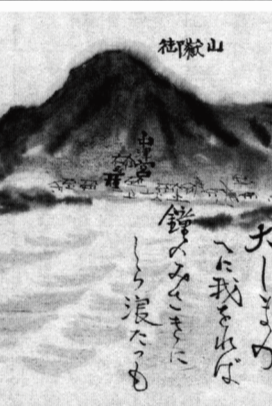 御嶽山
大しまの
へに我をれば
鐘のみさきに
しら浪たつも